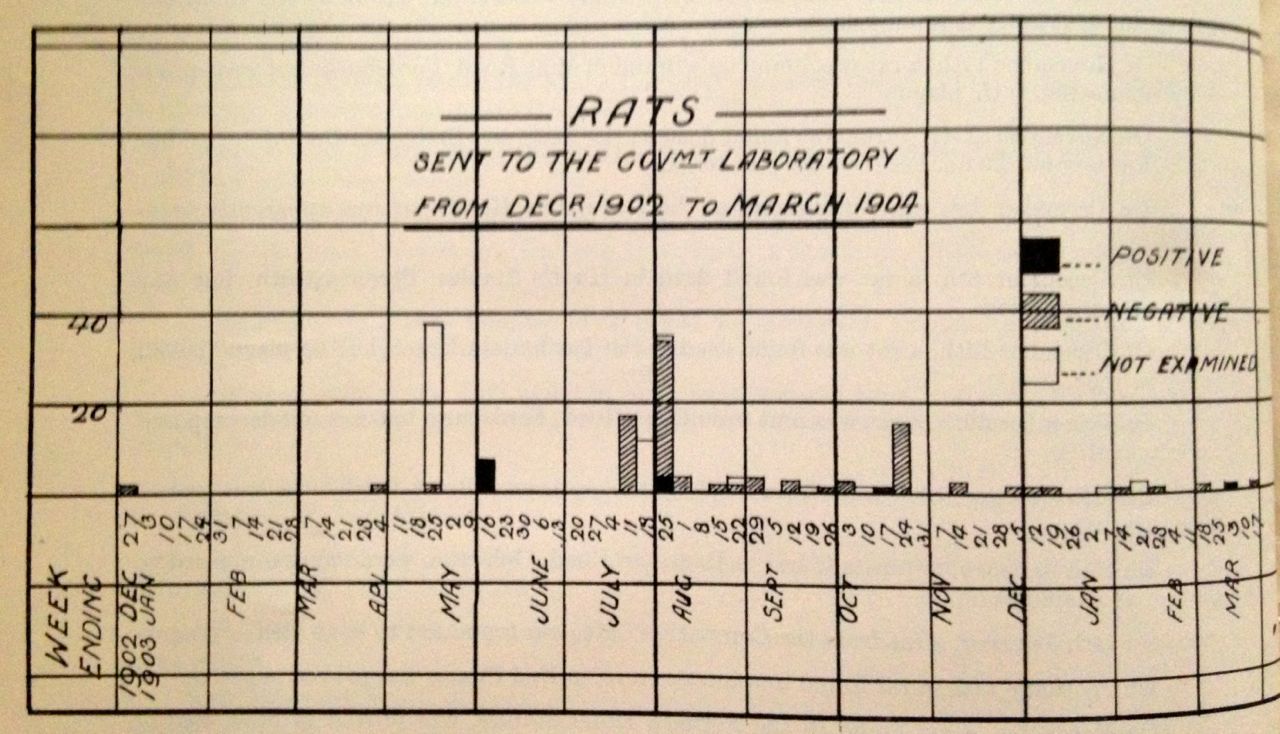 RATS
SENT TO THE GOVMT LABORATORY
FROM DECR. 1902 TO MARCH 1904
POSITIVE
NEGATIVE
NOT EXAMINED
40
20
27 3 10 17 24 31 7 14 21 28 7 14 21 28 4 11 18 25 2 9 16 23 30 6 13 20 27 4 11 18 25 1 8 15 22 29 5 12 19 26 3 10 17 24 31 7 14 21 28 5 12 19 26 2 7 14 21 28 4 11 18 25 3 10 17
WEEK ENDING
1902 DEC
1903 JAN
FEB
MAR
APL
MAY
JUNE
JULY
AUG
SEPT
OCT
NOV
DEC
JAN
FEB
MAR